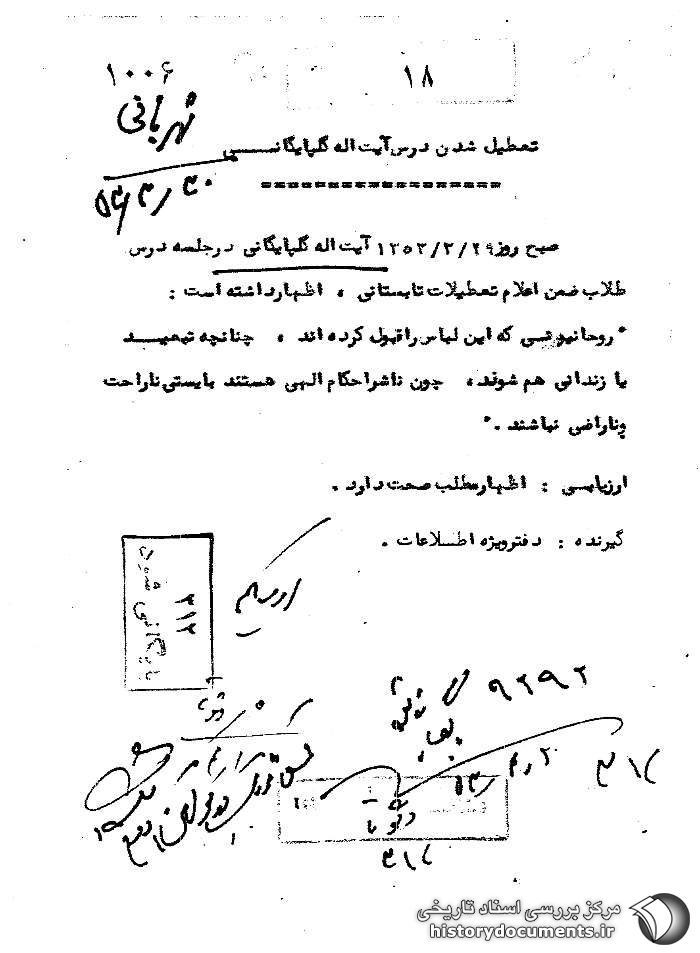 ۱۸
۱۰۰۶
شهربانی
۵۳/۳/۳۰
تعطیل شدن درس آیت اله گلپایگانی
==================
صبح روز ۱۳۵۳/۳/۲۹ آیت اله گلپایگانی در جلسه درس
طلاب ضمن اعلام تعطیلات تابستانی ، اظهار داشته است :
" روحانیونی که این لباس را قبول کرده اند ، چنانچه تبعید
یا زندانی هم شوند، چون ناشر احکام الهی هستند بایستی ناراحت
وناراضی نباشند . "
ارزیابی : اظهار مطلب صحت دارد .
گیرنده : دفتر ویژه اطلاعات .
۳۱۲
بایگانی شود
۹۲۹۲
۳۱۲
۳۱۲
مرکز بررسی اسناد تاریخی
historydocuments.ir